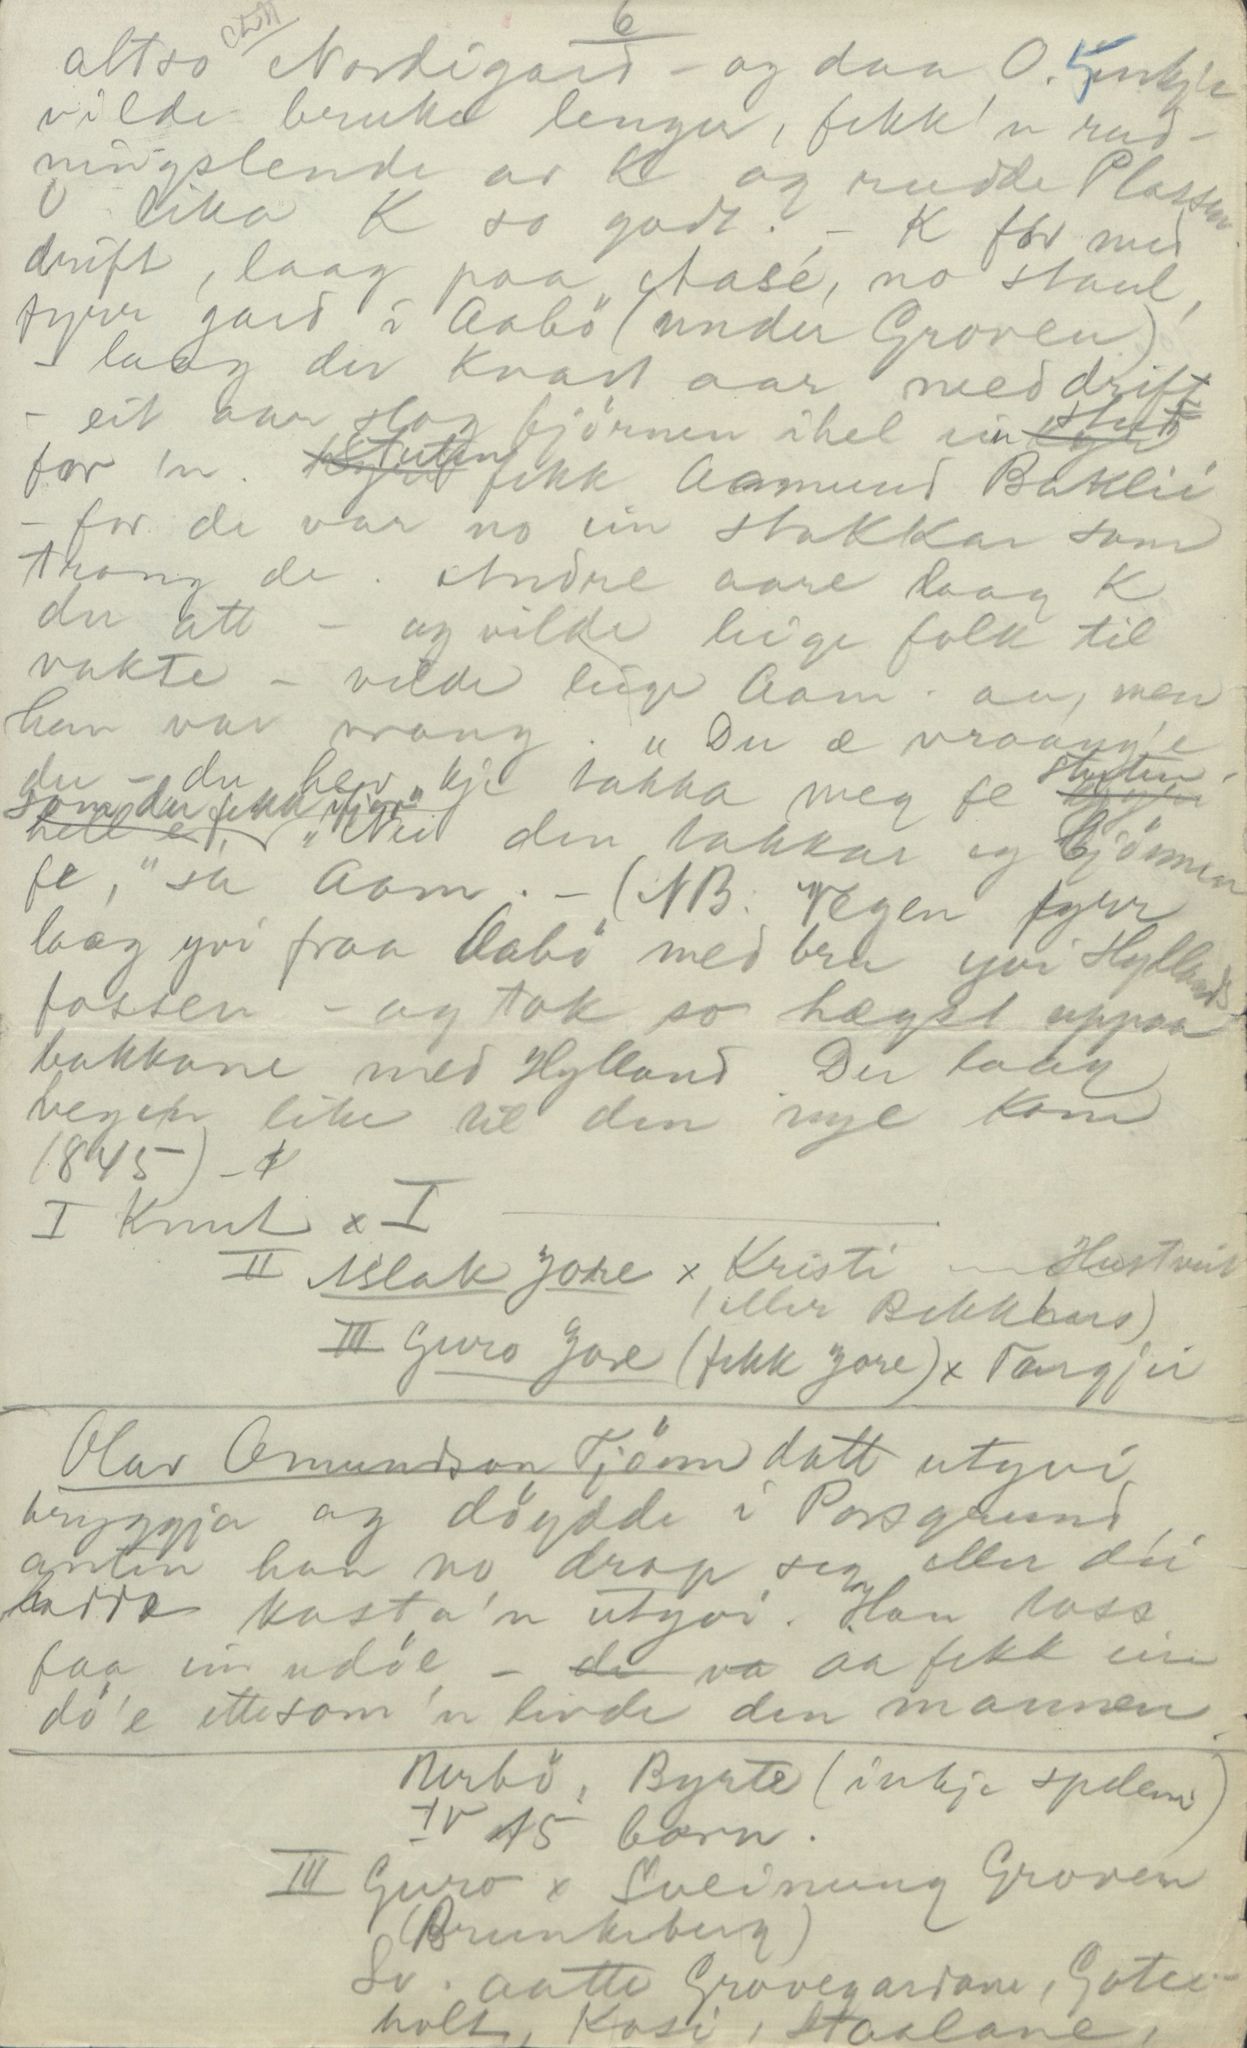 6
altso Nordigard - og daa O. inkje
vilde bruke lenger, fekk'n rud-
ningslende av K og rudde Plassen.
O lika K so godt. - K for med
drift, laag paa Aasé, no staul,
fyrr gard i Aabö (under Groven)
- laag der kvart aar med drift
- eit aar slog björnen ihel ein stut
for 'n. Stuten fekk Aamund Baklii
- for de var no ein stakkar som
trong de. Andre aare laag K
der att - og vilde leige folk til
vakte - vilde leige Aam. au, men
han var vrang. "Du æ vraang'e
du - du hev kje takka meg fe stuten
som du fekk ifjor" "Nei den takkar eg Björnen
fe," sa Aam. - (NB. Vegen fyrr
laag yvi fraa Aabö med bru yvi Hyllands-
fossen - og tok so hægst uppaa
bakkane med Hylland. Der laag
vegen like til den nye kom
1845) -
I Knut x I
II Aslak Jore x Kristi Hustveit
(eller Bekkhus)
III Guro Jore (fekk Jore) x Targjei
Olav Omundson Tjönn datt utyvi
bryggja og döydde i Porsgrund,
anten han no drap seg eller dei
hadde kasta'n utyvi. Han lass
faa ein udöe - de va aa fekk ein
dö'e ettesom 'n livde den mannen.
Nerbö, Byrte (inkje spelem)
IV 15 born.
III Guro x Sveinung Groven
(Brunkeberg)
Sv. aatte Grovegardane, Gotei-
holt, Kosi, Staalane,